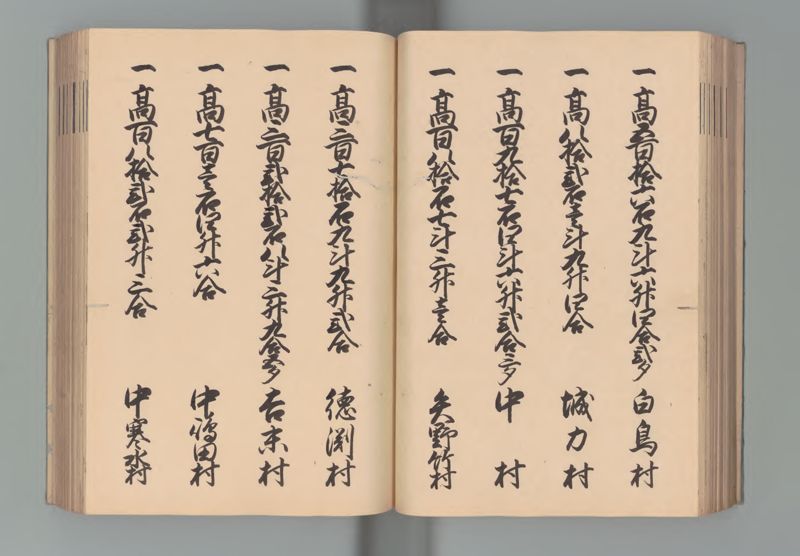 一高五百拾六石九斗六升四合弐夕 白鳥村
一高八拾弐石壱斗九升四合 城力村
一高百九拾七石四斗六升弐合三夕 中村
一高百八拾石七斗三升壱合 矢野竹村
一高三百七拾石九斗九升弐合 徳渕村
一高三百弐拾弐石八斗三升九合五夕 吉末村
一高七百壱石四升六合 中嶋田村
一高百八拾弐石弐升三合 中寒水村